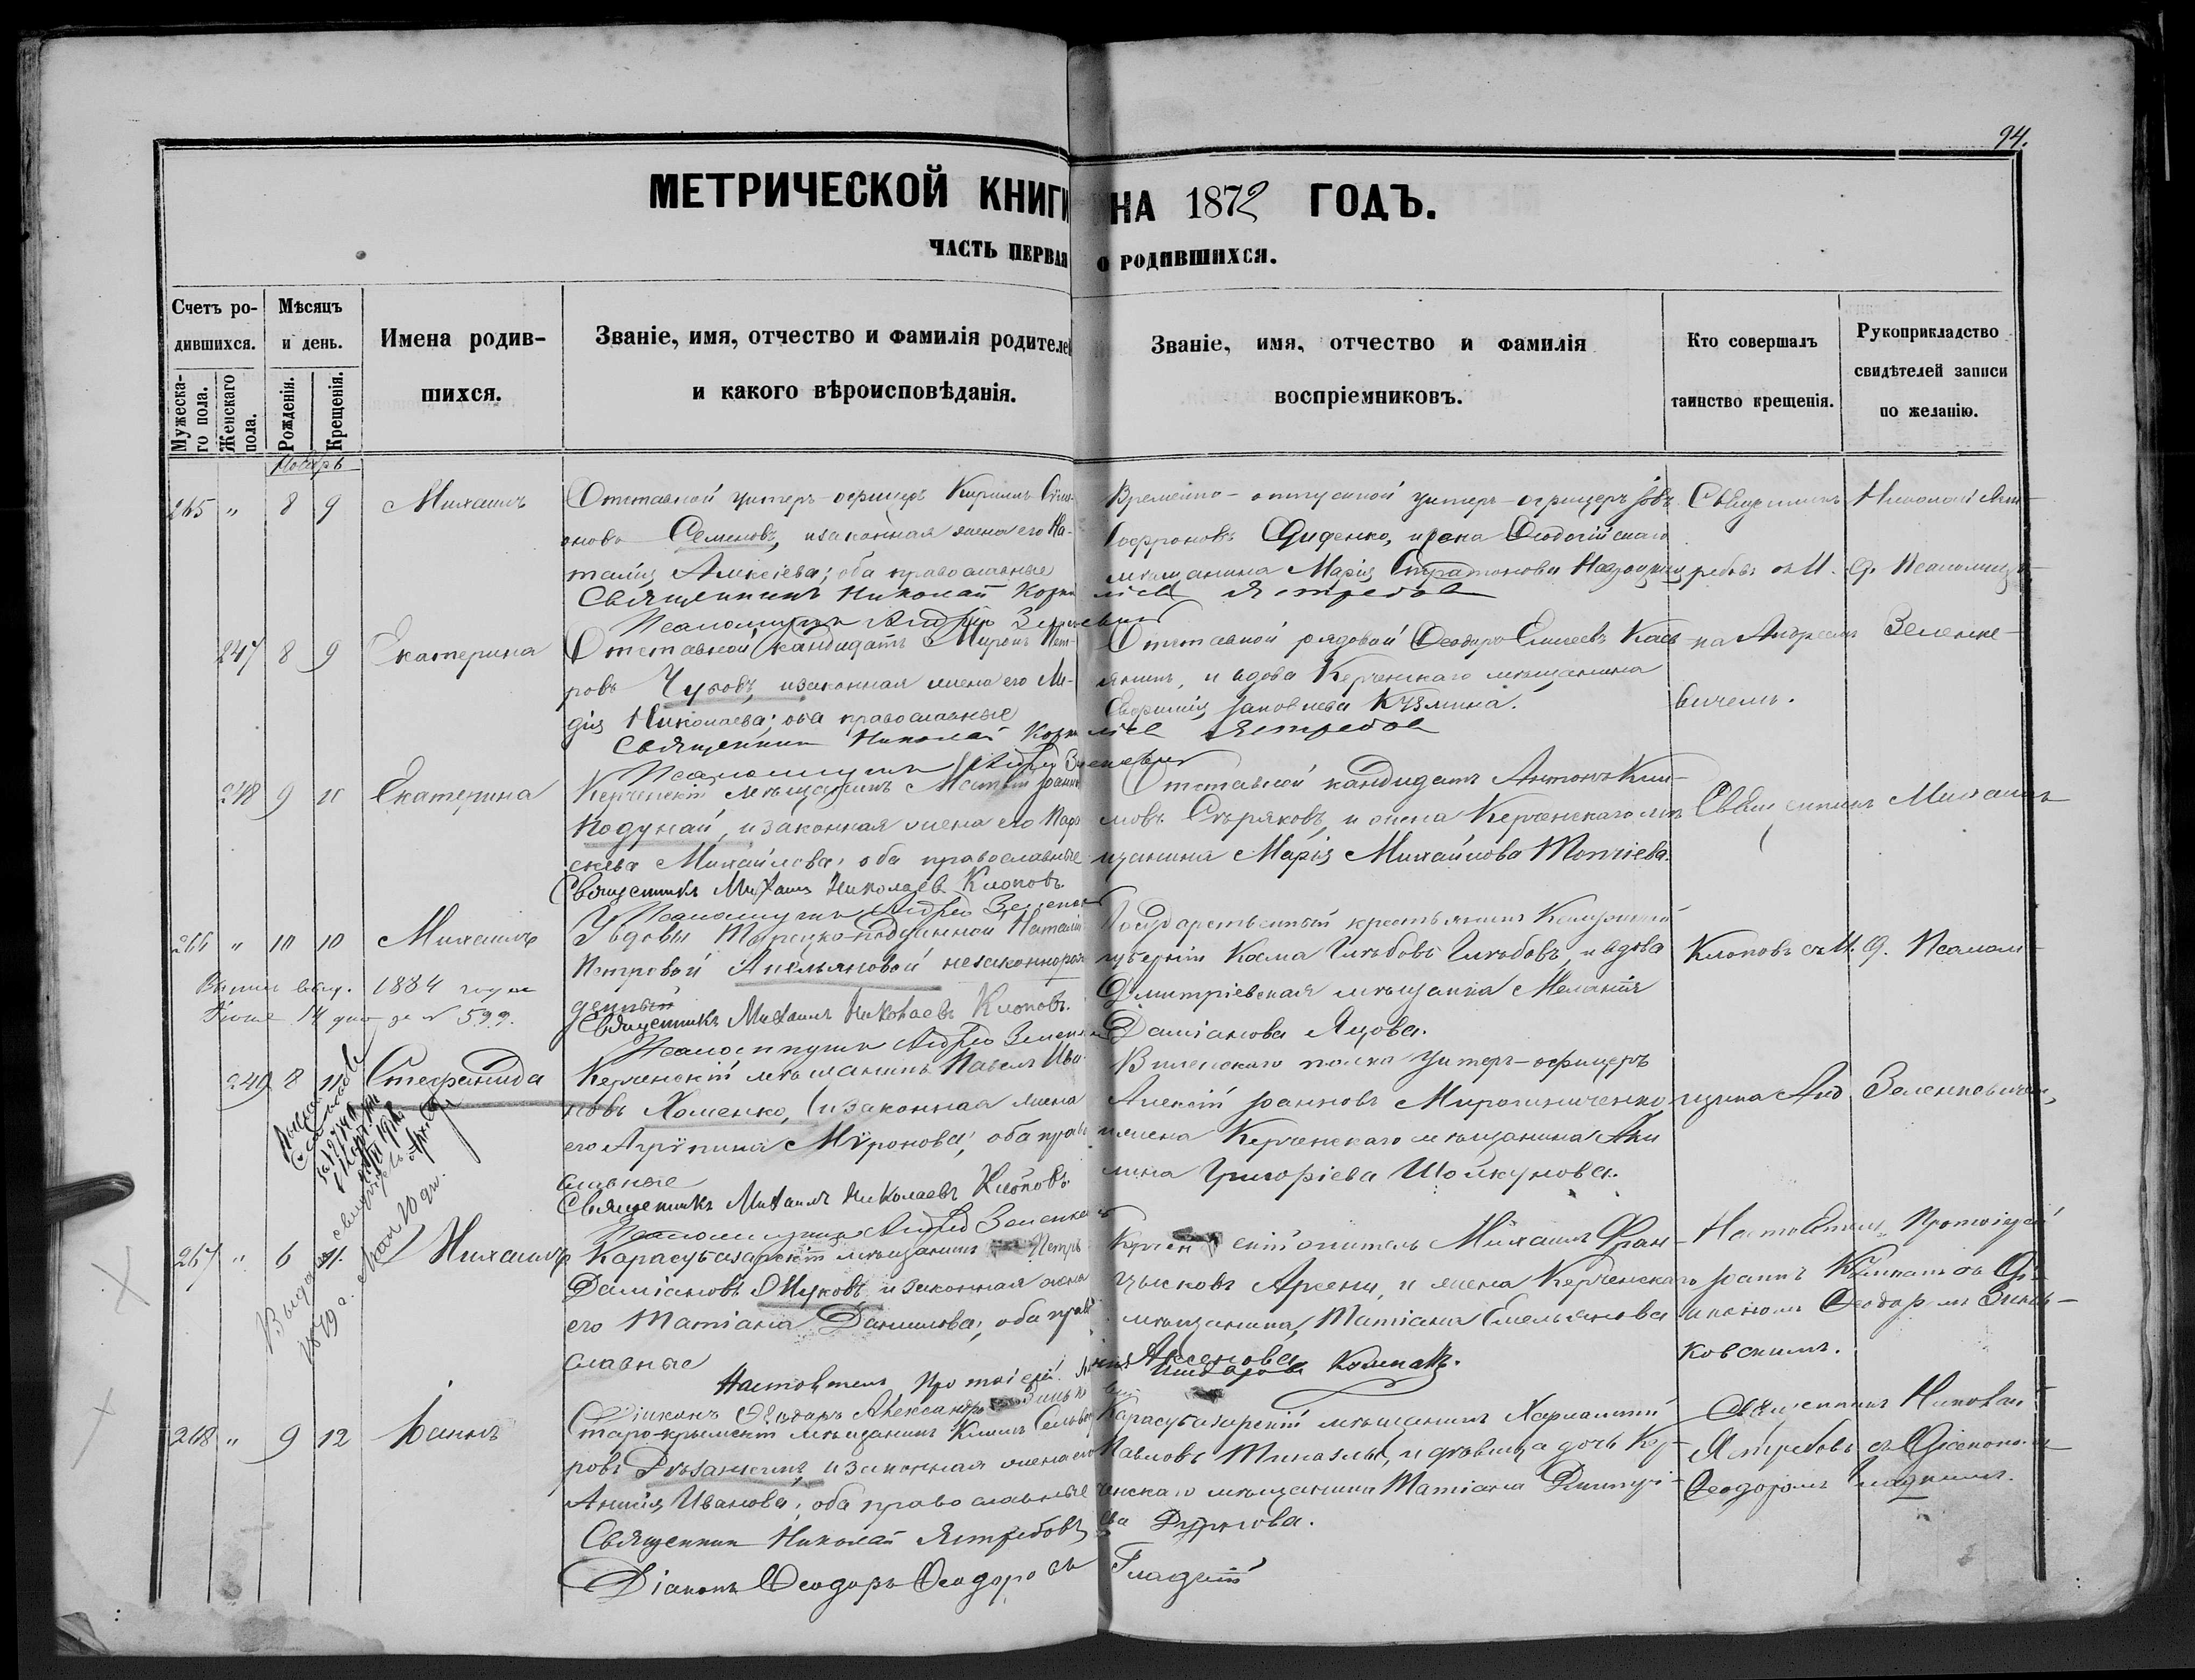 94.
МЕТРИЧЕСКОЙ КНИГИ НА 1872 ГОДЪ.
ЧАСТЬ ПЕРВАЯ О РОДИВШИХСЯ.
Счетъ ро-
дившихся.
Мужеска-
го пола.
Женскаго
пола.
Мѣсяцъ
и день.
Рожденія.
Крещенія.
Имена родив-
шихся.
Званіе, имя, отчество и фамилія родителей
и какого вѣроисповѣданія.
Званіе, имя, отчество и фамилія
воспріемниковъ.
Кто совершалъ
таинство крещенія.
Рукоприкладство
свидѣтелей записи
по желанію.
Ноябрь
265 " 8 9 Михаилъ
Отставной унтеръ-офицеръ Кириллъ
оновъ Семеновъ, и законная жена его На-
талія Алексіева; оба православные
Священникъ Николай Корниліевъ Ястребовъ
Псаломщикъ Андрей Зеленкевичъ
Временно-отпускной унтеръ-офицеръ Іовъ
Софроновъ Диденко, и жена Ѳеодосійскаго
мѣщанина Марія
Священникъ Николай Яст-
ребовъ съ И. д. Псаломщи-
247 8 9 Екатерина
Отставной кандидатъ Миронъ Пет-
ровъ Чуковъ, и законная жена его Ли-
дія Николаева; оба православные
Священникъ Николай Корниліевъ Ястребовъ
Псаломщикъ Андрей Зеленкевичъ
Отставной рядовой Ѳеодоръ Елисеевъ Кась-
янинъ, и вдова Керченскаго мѣщанина
Евфимія Іаковлева Кузмина.
ка Андреемъ Зеленке-
вичемъ.
248 9 11 Екатерина
Керченскій мѣщанинъ Матвій Іоанновъ
Кодунай, и законная жена его Пара-
скева Михайлова; оба православные
Священникъ Михаилъ Николаевъ Клоповъ.
Псаломщикъ Андрей Зеленкевичъ
Отставной кандидатъ Антонъ Кли-
мовъ Стряковъ, и жена Керченскаго мѣ-
щанина Марія Михайлова Топчіева.
Священникъ Михаилъ
266 " 10 10 Михаилъ
У вдовы Турецко-подданной Наталіи
Петровой Амельяновой незаконнорож-
денный
Священникъ Михаилъ Николаевъ Клоповъ.
Псаломщикъ Андрей Зеленкевичъ
Государственный крестьянинъ Калужской
губерніи Косма Глѣбовъ Глѣбовъ, и вдова
Дмитріевская мѣщанка Меланія
Даміанова Яцова.
Клоповъ съ И. д. Псалом-
1884 года
Іюня 14 дня за № 599.
249 8 11 Стефанида
Керченскій мѣщанинъ Павелъ Ива-
новъ Хоменко, и законная жена
его Агрипина Мѵронова; оба право-
славные
Священникъ Михаилъ Николаевъ Клоповъ.
Псаломщикъ Андрей Зеленкевичъ
Виленскаго полка Унтеръ-офицеръ
Алексій Іоанновъ Мирошниченко,
и жена Керченскаго мѣщанина Аки-
лина Григоріева Шолкунова.
щика Анд. Зеленкевичемъ.
1879 г. Мая 20 дн.
267 " 6 11. Михаилъ
Карасубазарскій мѣщанинъ Петръ
Даміановъ Жуковъ и законная жена
его Татіана Данилова; оба право-
славные
Настоятель Протоіерей Іоаннъ Колпакъ.
Діаконъ Ѳеодоръ Александровъ
Керченскій житель Михаилъ Фран-
цысковъ Арсени, и жена Керченскаго
мѣщанина, Татіана Емельянова
Аксенова
Настоятель Протоіерей
Іоаннъ Колпакъ съ Ді-
акономъ Ѳеодоромъ Зинь-
ковскимъ.
268 " 9 12 Іоаннъ
Старо-крымскій мѣщанинъ Климъ Сельвест-
ровъ Рѣзанцевъ, и законная жена его
Анисія Иванова; оба православные
Священникъ Николай Ястребовъ
Діаконъ Ѳеодоръ Ѳеодоровъ Гладкій
Карасубазарскій мѣщанинъ Харлампій
Павловъ Тиназлы, и дѣвица дочь Кер-
ченскаго мѣщанина Татіана Димитрі-
ева Дурнова.
Священникъ Николай
Ястребовъ съ Діакономъ
Ѳеодоромъ Гладкимъ.